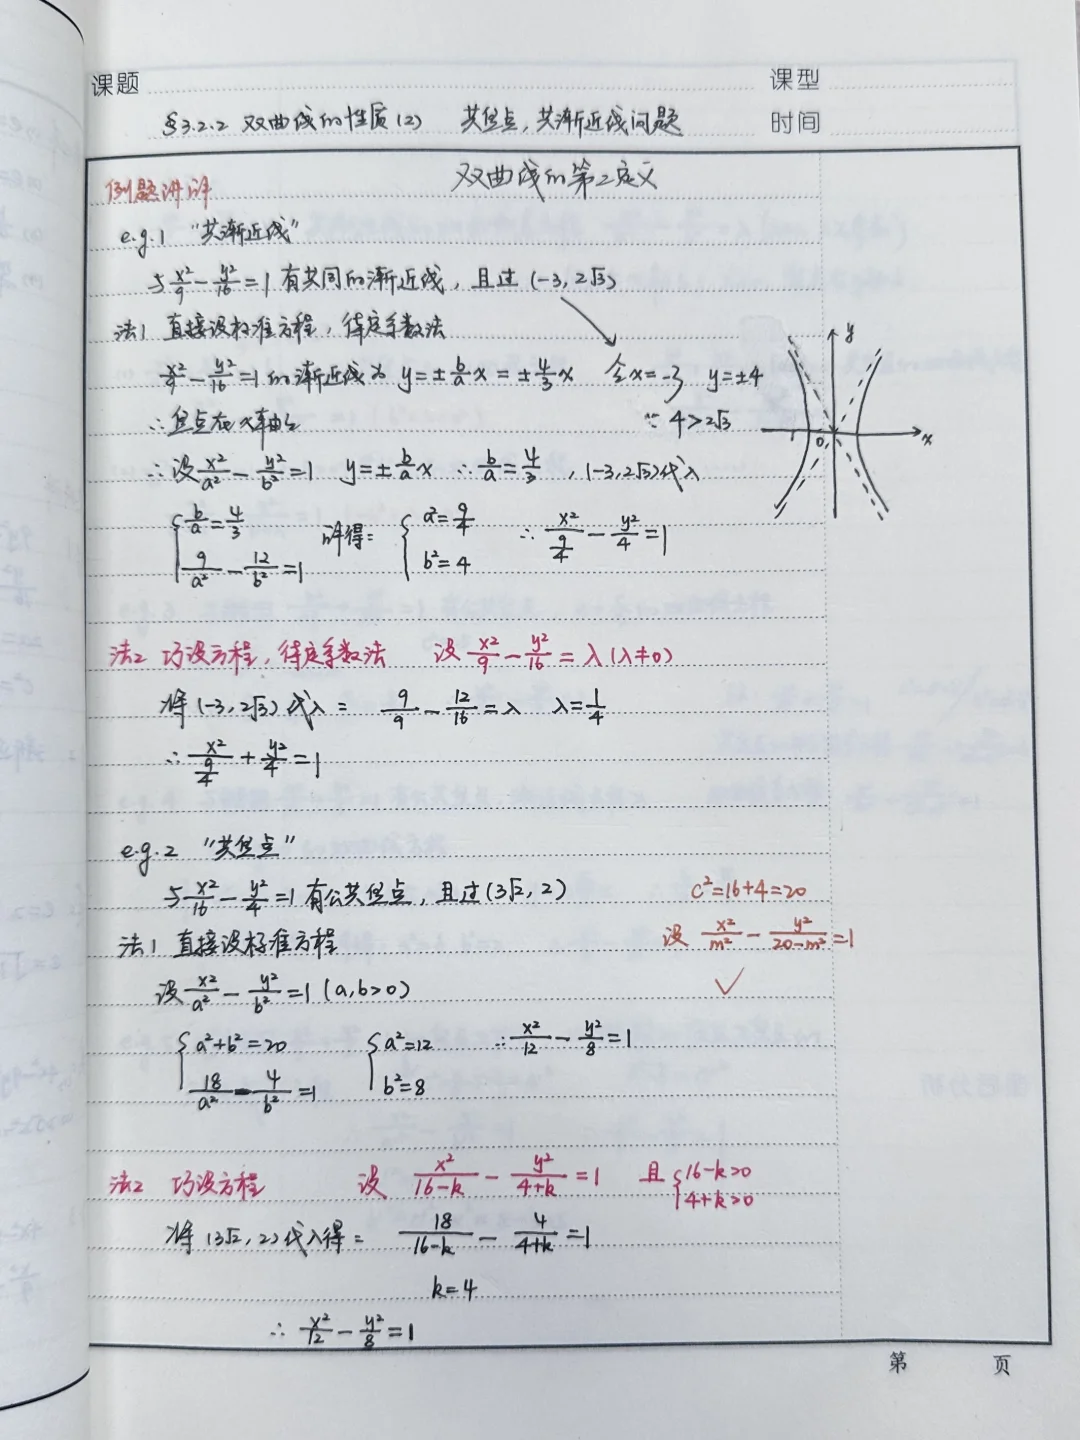 课题
课型
§3.2.2 双曲线的性质(2) 共焦点,共渐近线问题
时间
双曲线的第2定义
例题讲解
e.g.1 "共渐近线"
与x²/9 - y²/16 = 1 有共同的渐近线,且过(-3, 2√3)
法1 直接设标准方程,待定系数法
x²/9 - y²/16 = 1的渐近线为 y = ± b/a x = ± 4/3 x 令x=-3 y=±4
∴焦点在x轴上 ∵ 4>2√3
∴设x²/a² - y²/b² = 1 y = ± b/a x ∴ b/a = 4/3, (-3, 2√3)代入
{ b/a = 4/3
9/a² - 12/b² = 1
解得: { a² = 9/4
b² = 4
∴ x²/(9/4) - y²/4 = 1
y
x
0
1
法2 巧设方程,待定系数法 设 x²/9 - y²/16 = λ (λ≠0)
将(-3, 2√3)代入: 9/9 - 12/16 = λ λ = 1/4
∴ x²/(9/4) + y²/4 = 1
e.g.2 "共焦点"
与x²/16 - y²/4 = 1有公共焦点,且过(3√2, 2)
c²=16+4=20
法1 直接设标准方程
设 x²/m² - y²/(20-m²) = 1
✓
设x²/a² - y²/b² = 1 (a,b>0)
{ a²+b²=20
18/a² - 4/b² = 1
{ a²=12
b²=8
∴ x²/12 - y²/8 = 1
法2 巧设方程 设 x²/(16-k) - y²/(4+k) = 1 且{ 16-k>0
4+k>0
将(3√2, 2)代入得: 18/(16-k) - 4/(4+k) = 1
k=4
∴ x²/12 - y²/8 = 1
第 页